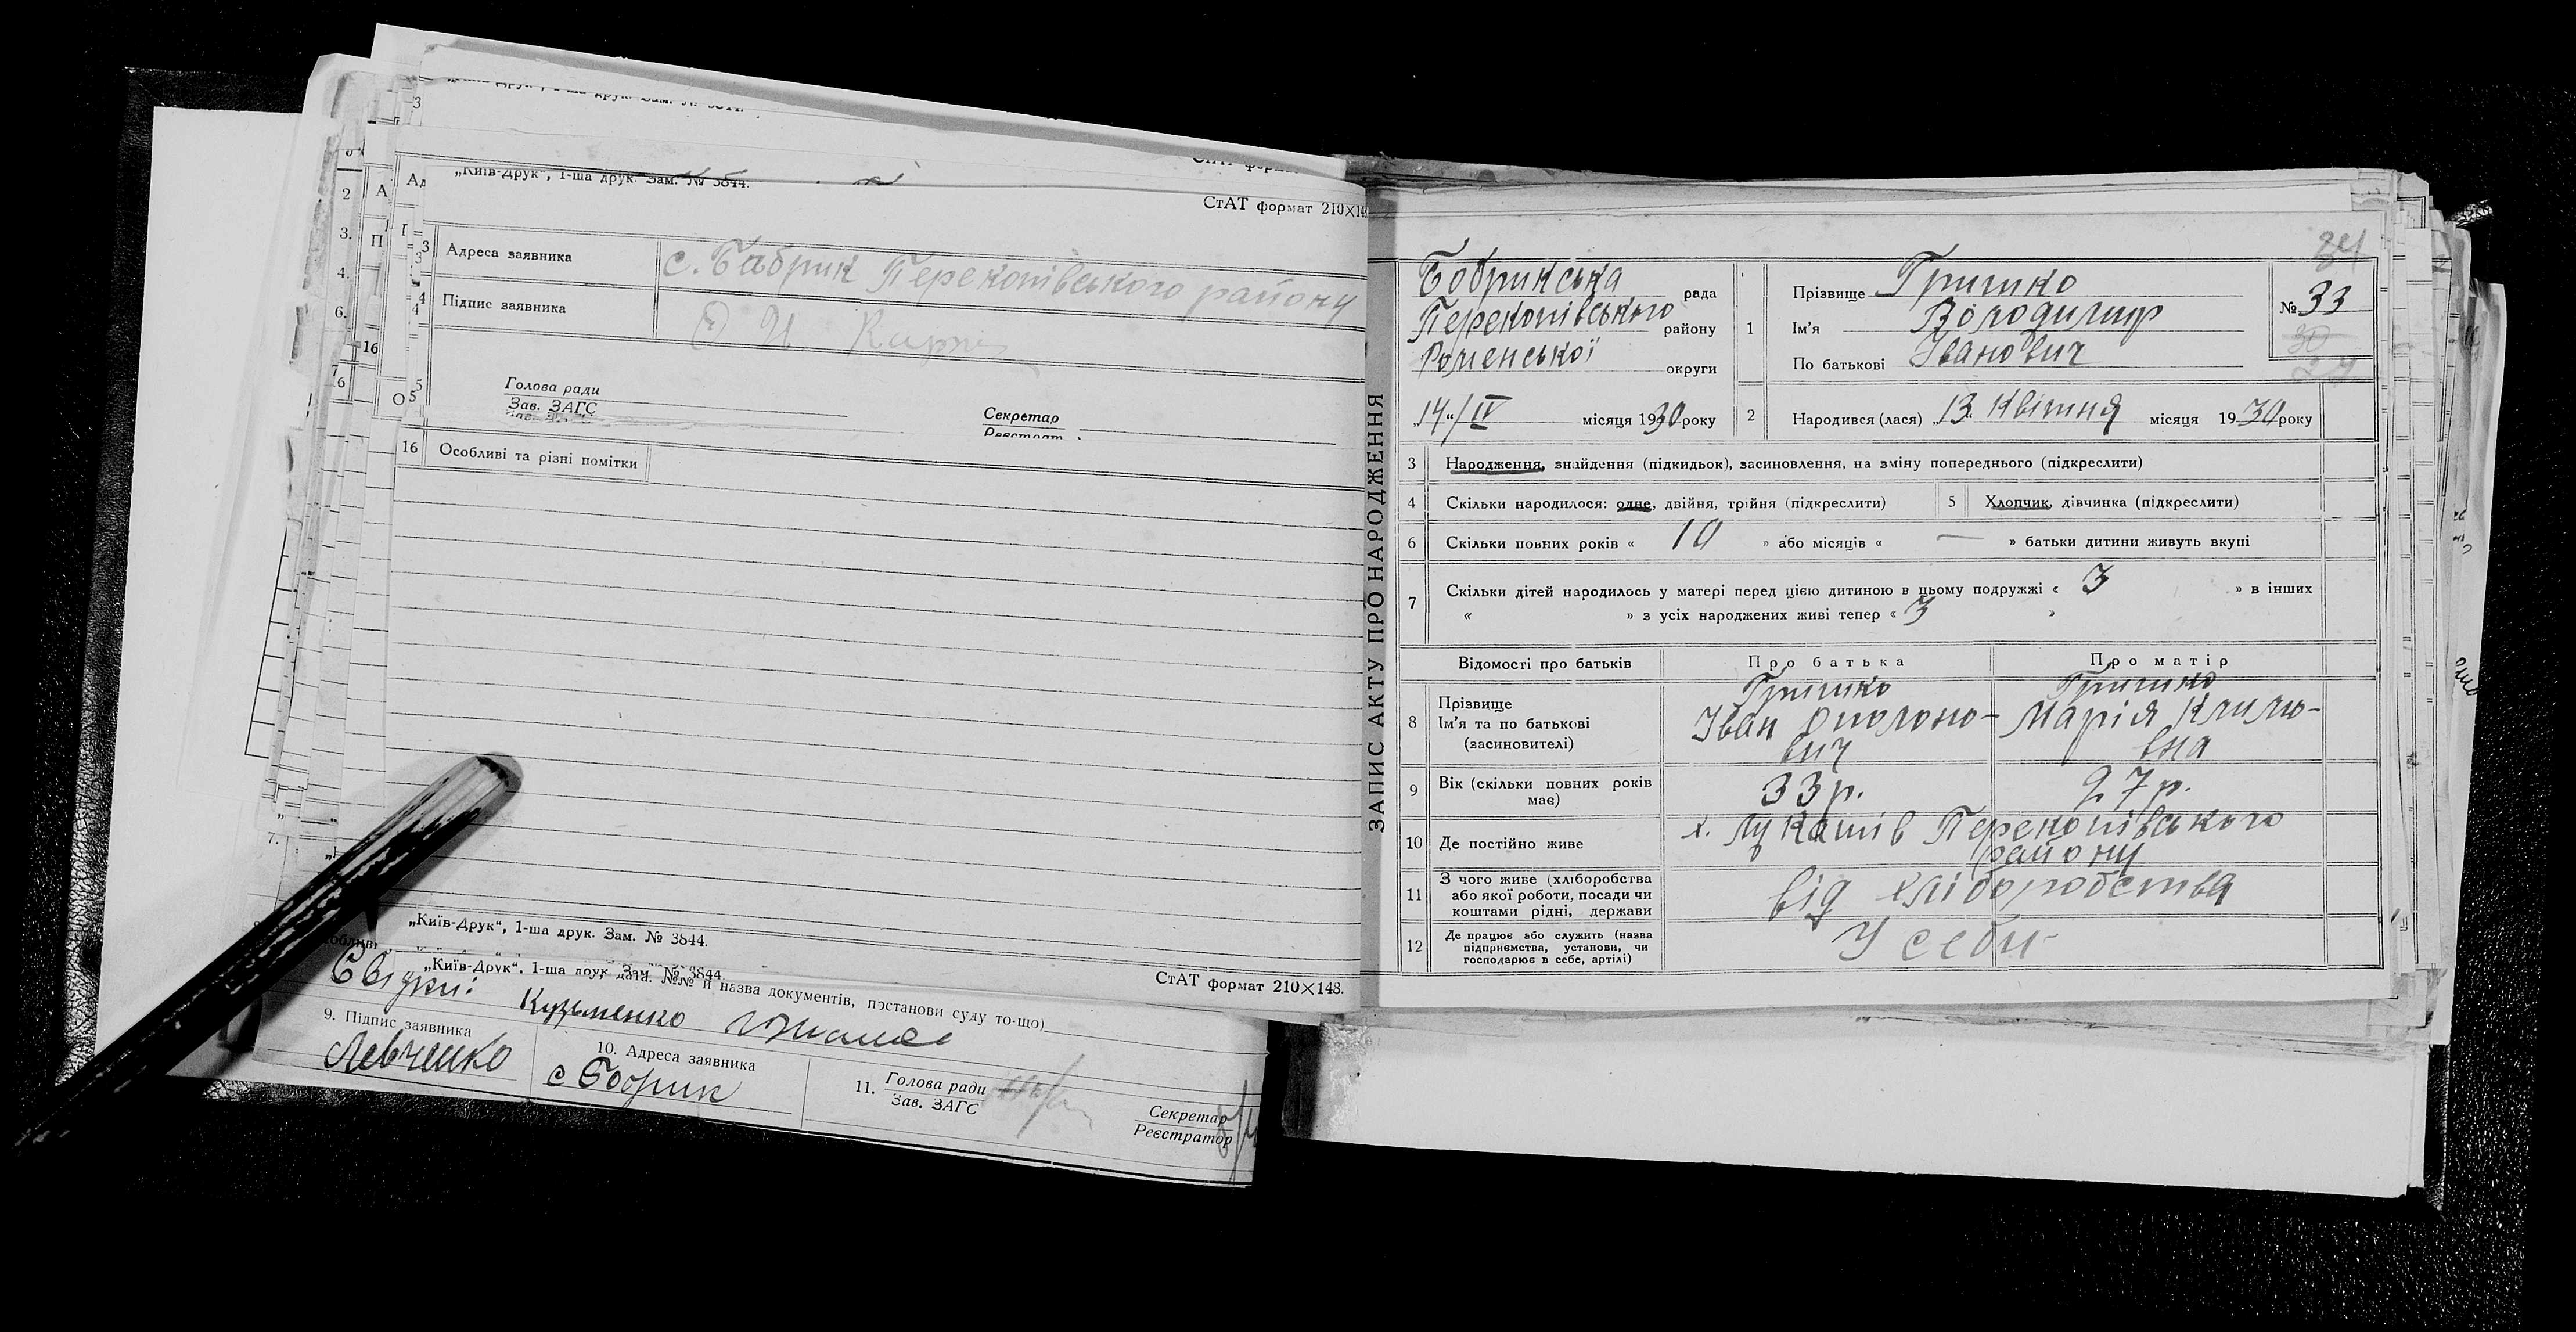 „Київ-Друк“, 1-ша друк. Зам. № 3844.
СтАТ формат 210×148.
3 Адреса заявника с. Бобрик Перекопівського району
4 Підпис заявника
Голова ради
Зав. ЗАГС
Секретар
Реєстрат
16 Особливі та різні помітки
„Київ-Друк“, 1-ша друк. Зам. № 3844.
„Київ-Друк“, 1-ша друк. Зам. № 3844.
СтАТ формат 210×148.
дата. №№ й назва документів, постанови суду то-що)
Свідки: Кузьменко
9. Підпис заявника
Левченко
10. Адреса заявника
с Бобрик
11. Голова ради
Зав. ЗАГС
Секретар
Реєстратор
ЗАПИС АКТУ ПРО НАРОДЖЕННЯ
84
Бобринська рада
Перекопівського району
Роменської округи
„14“/IV місяця 1930 року
1 Прізвище Гришко
Ім’я Володимир
По батькові Іванович
№ 33
30
29
2 Народився (лася) „13“ квітня місяця 1930 року
3 Народження, знайдення (підкидьок), засиновлення, на зміну попереднього (підкреслити)
4 Скільки народилося: одне, двійня, трійня (підкреслити) 5 Хлопчик, дівчинка (підкреслити)
6 Скільки повних років « 10 » або місяців « — » батьки дитини живуть вкупі
7 Скільки дітей народилось у матері перед цією дитиною в цьому подружжі « 3 » в інших
« » з усіх народжених живі тепер « 3 »
Відомості про батьків Про батька Про матір
8 Прізвище Ім’я та по батькові (засновителі)
Гришко Іван
Гришко Марія Климовна
9 Вік (скільки повних років має) 33 р. 27 р.
10 Де постійно живе х. Лукашів Перекопівського району
11 З чого живе (хліборобства або якої роботи, посади чи коштами рідні, держави від хліборобства
12 Де працює або служить (назва підприємства, установи, чи господарює в себе, артілі) У себи